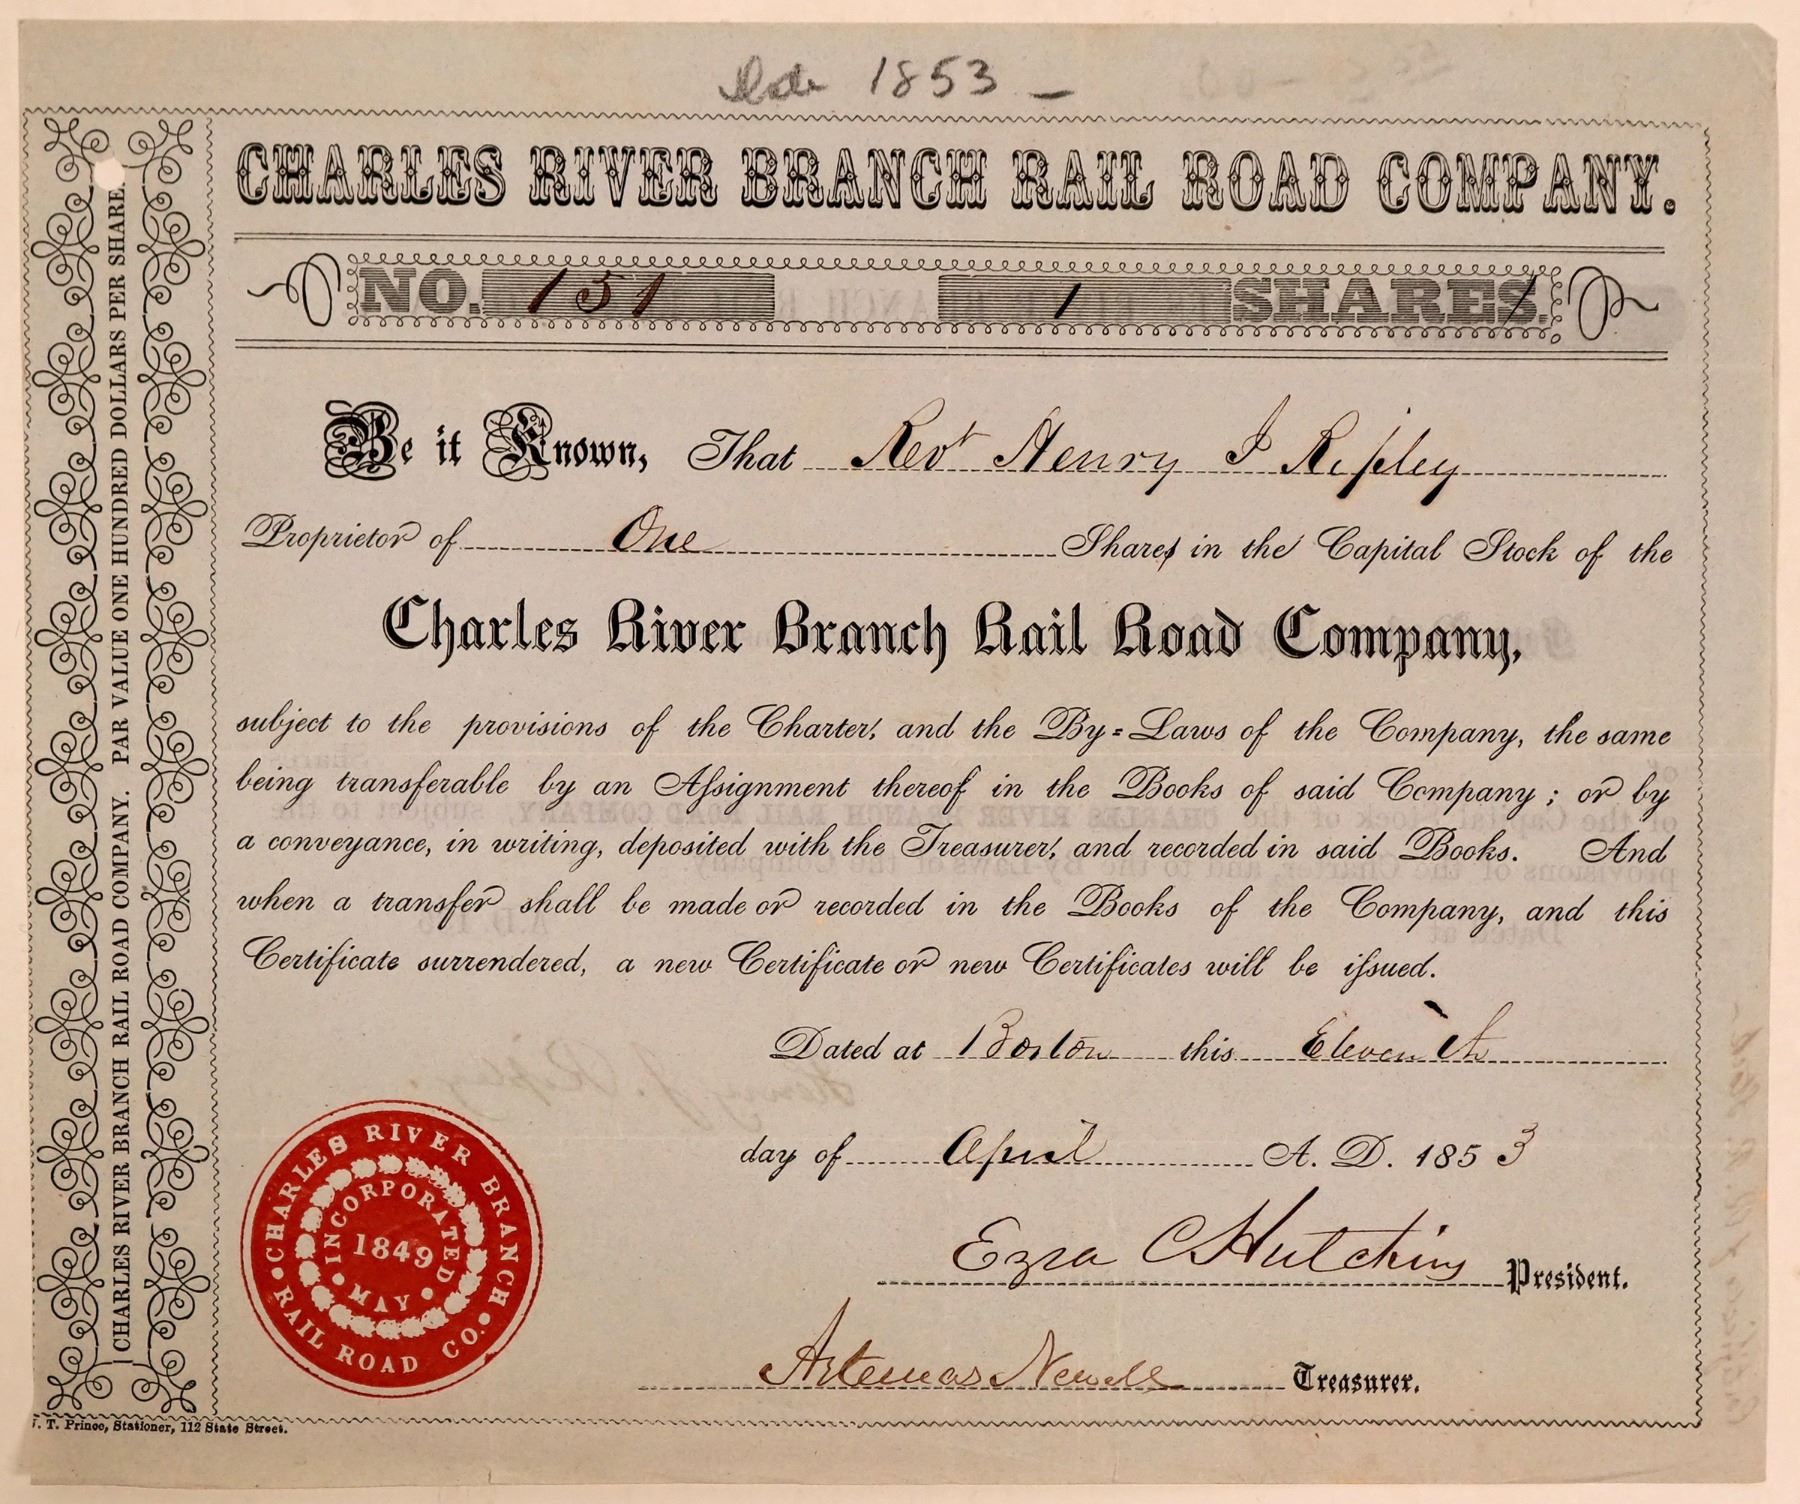 1853 —
CHARLES RIVER BRANCH RAIL ROAD COMPANY.
NO. 151 1 SHARES.
Be it Known, That Revt Henry J Ripley
Proprietor of One Shares in the Capital Stock of the
Charles River Branch Rail Road Company,
subject to the provisions of the Charter, and the By=Laws of the Company, the same
being transferable by an Assignment thereof in the Books of said Company; or by
a conveyance, in writing, deposited with the Treasurer, and recorded in said Books. And
when a transfer shall be made or recorded in the Books of the Company, and this
Certificate surrendered, a new Certificate or new Certificates will be issued.
Dated at Boston this Eleventh
day of April A. D. 1853
Ezra C Hutchins President.
Artemas Newell Treasurer.
CHARLES RIVER BRANCH RAIL ROAD CO.
INCORPORATED
1849
MAY
CHARLES RIVER BRANCH RAIL ROAD COMPANY. PAR VALUE ONE HUNDRED DOLLARS PER SHARE.
T. Prince, Stationer, 112 State Street.